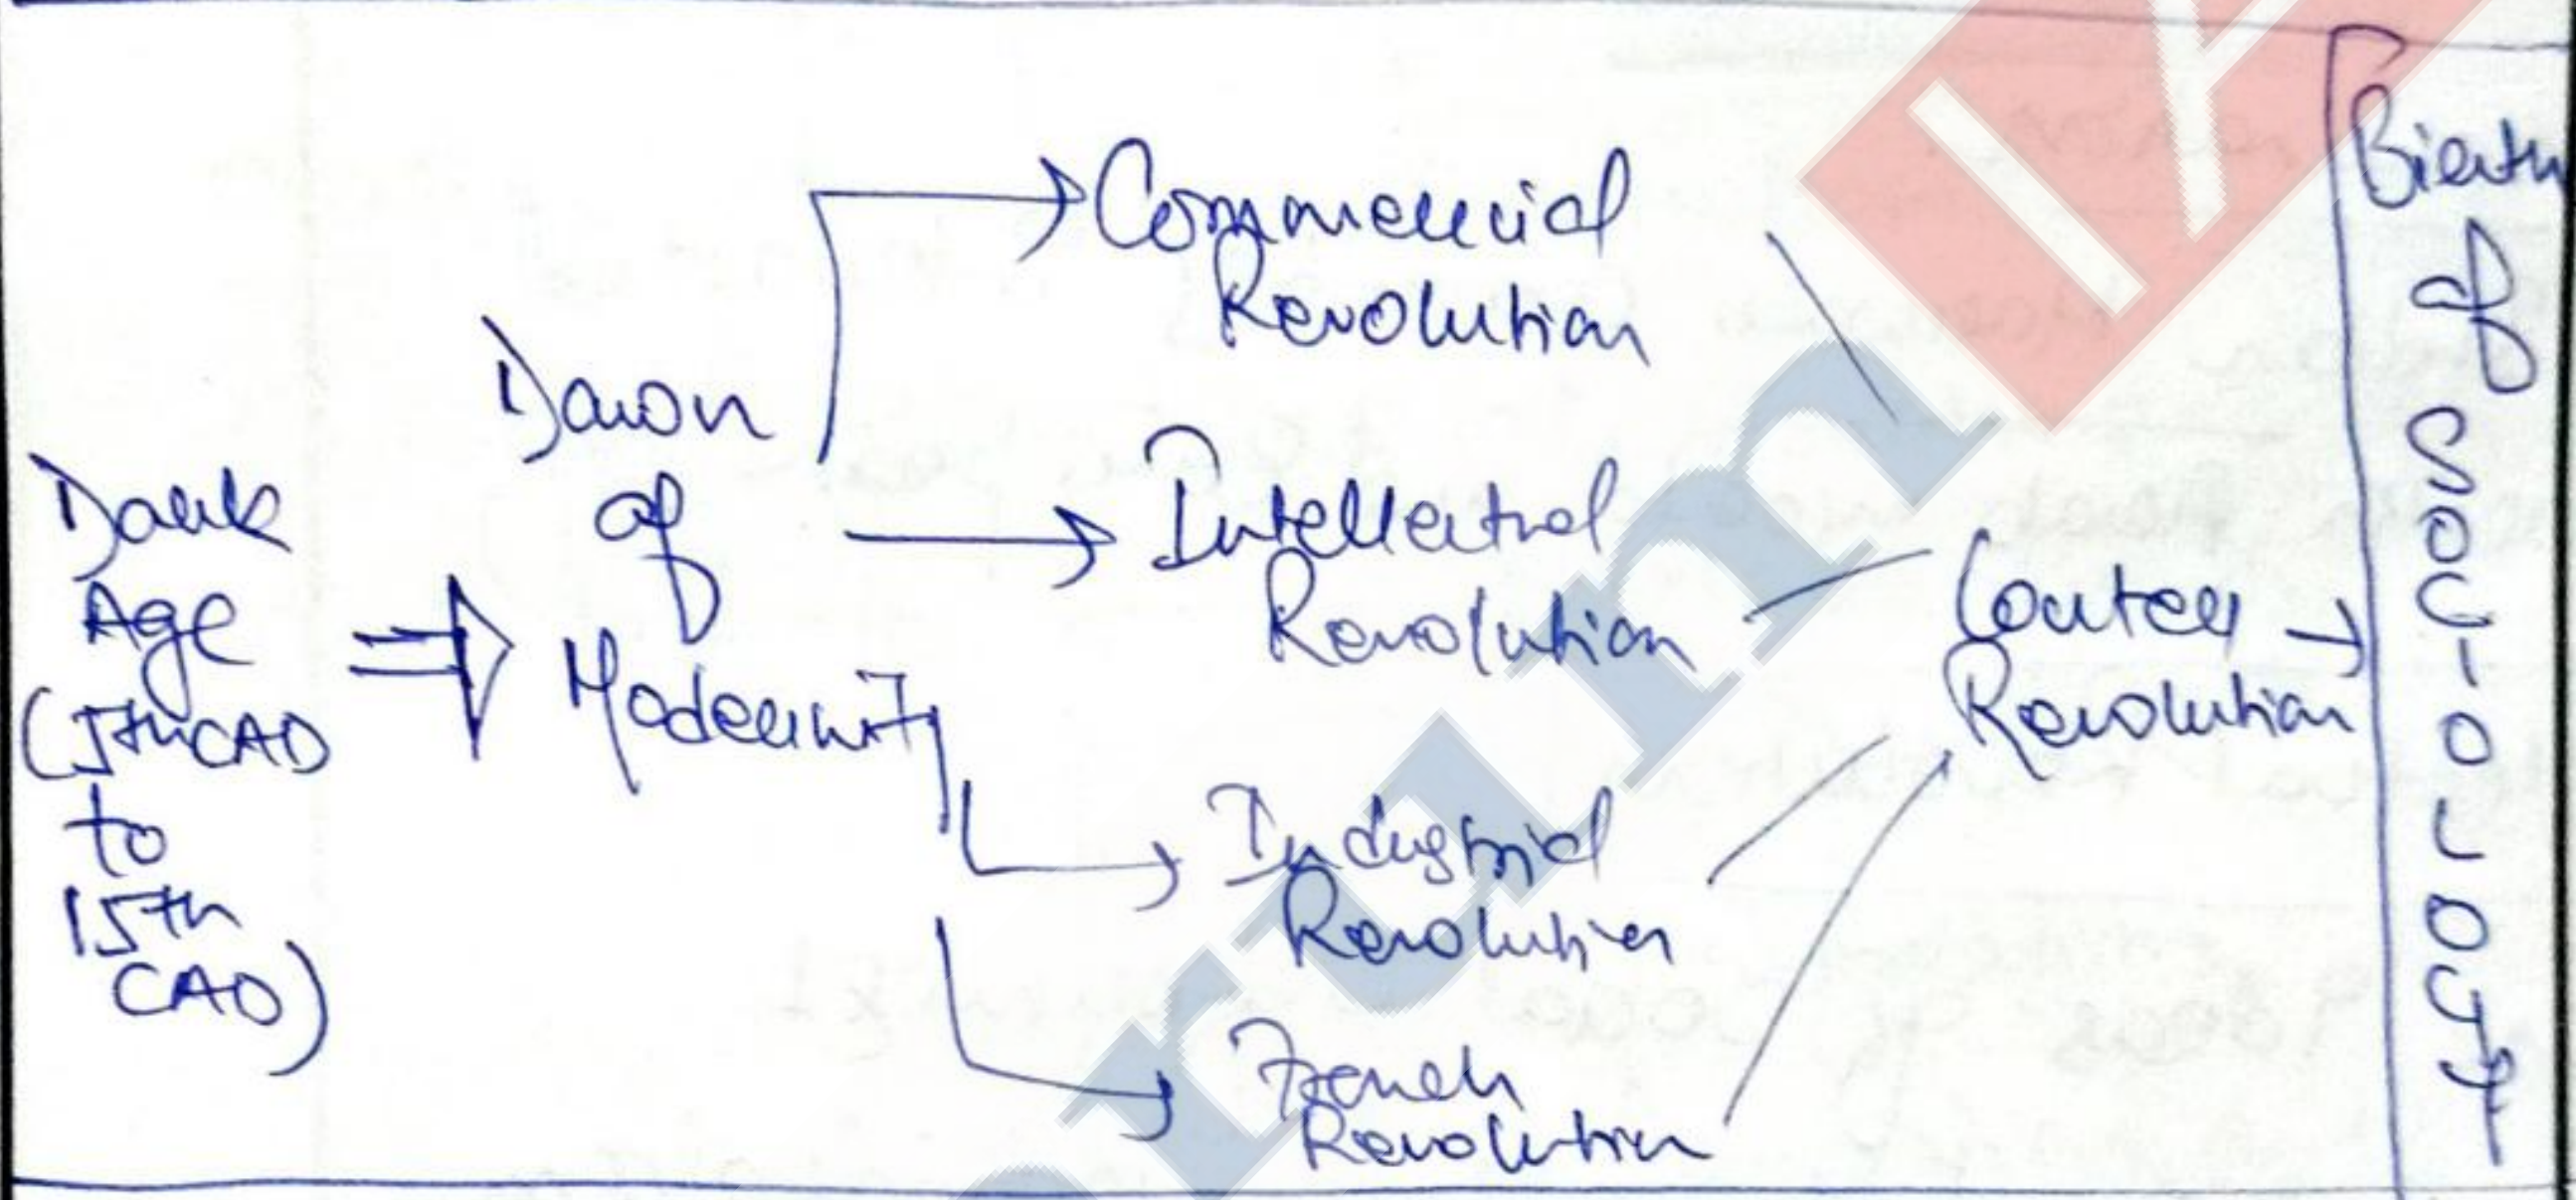 Dark
Age
(5th CAD
to
15th
CAD)
Dawon
of
Modernity
Commercial
Revolution
Intellectual
Revolution
Industrial
Revolution
French
Revolution
Conter
Revolution
Birth
of
SOCIOLOGY
rum
IA